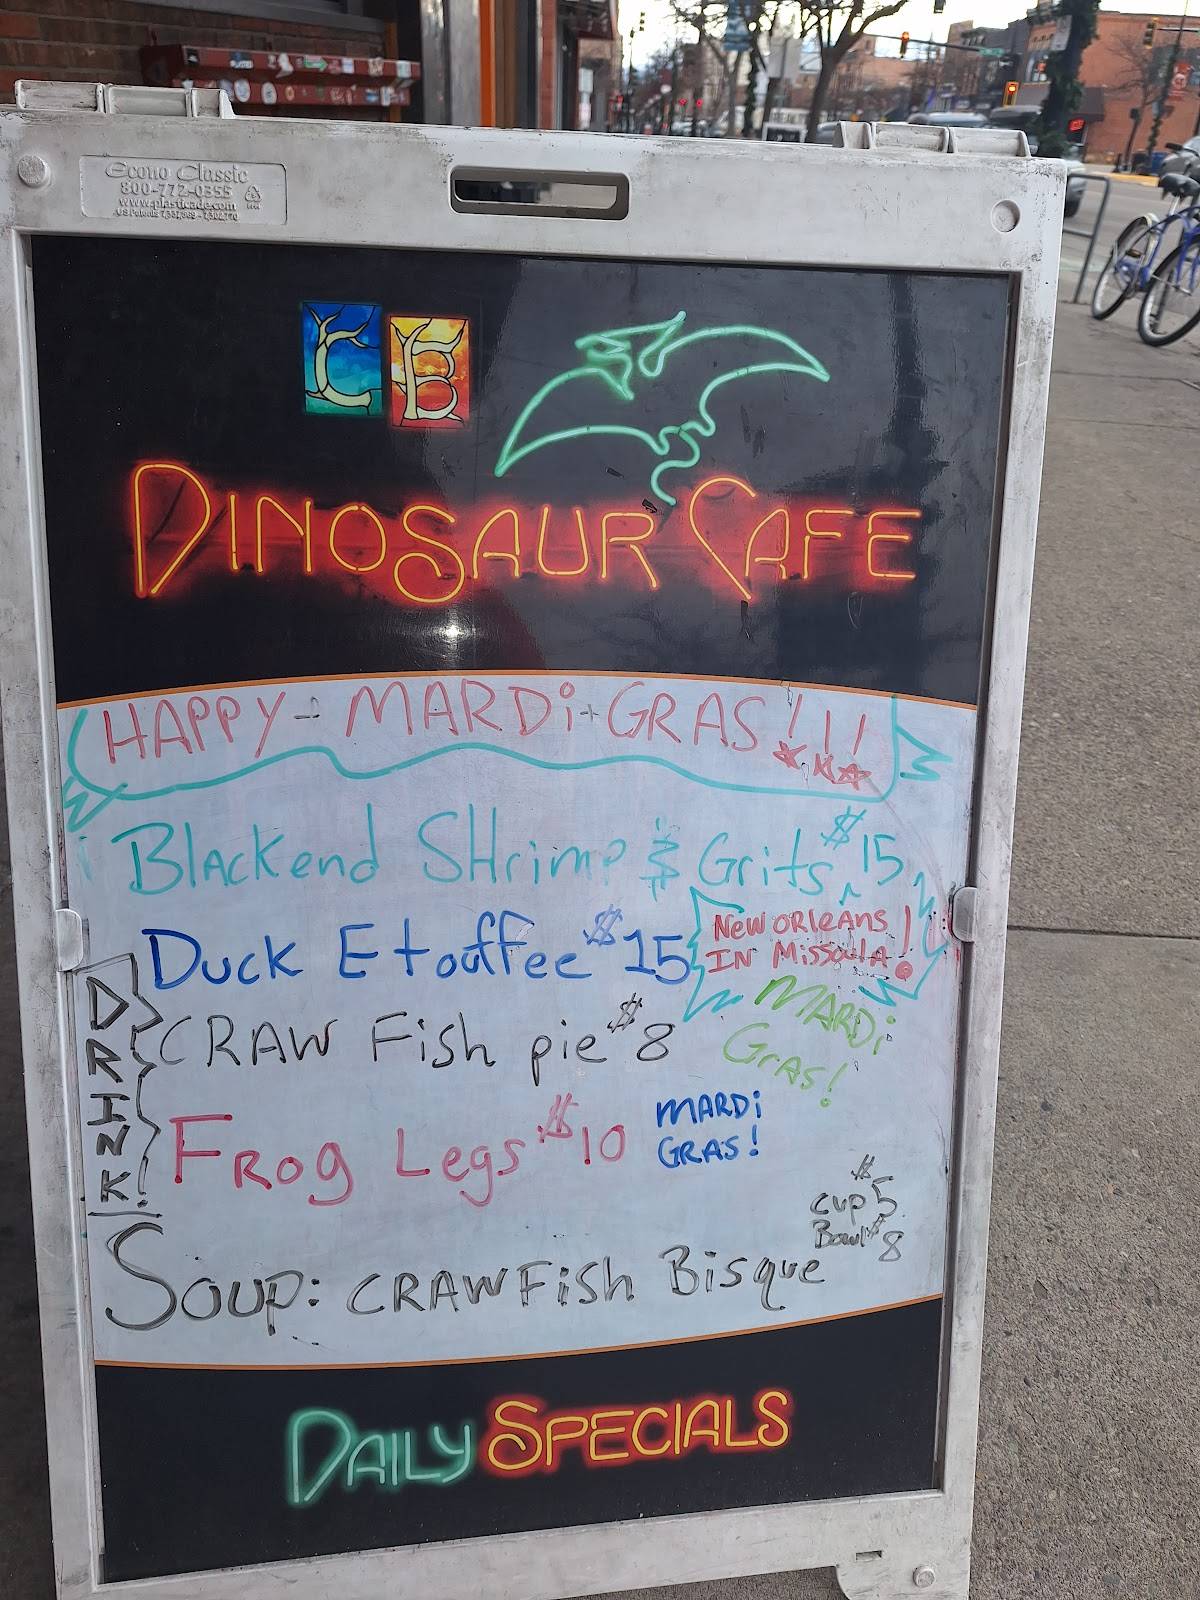 Econo Classic
800-772-0355
www.plasticade.com
CB
DINOSAUR CAFE
HAPPY - MARDi - GRAS!!!
Blackend SHrimp & Grits $15
Duck Etouffee $15
New ORLeANS
IN MissoulA!
CRAW Fish pie $8
MARDi
GrAs!
Frog Legs $10
MARDi
GRAS!
DRINK!
cup $5
Bowl $8
Soup: CRAWFish Bisque
DAILY SPECIALS